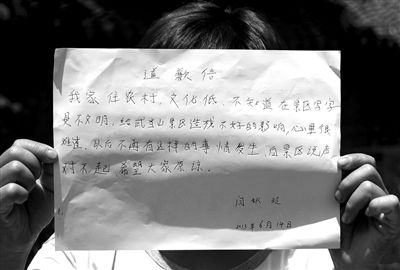 道歉信
我家住农村,文化低,不知道在景区写字
是不文明,给武当山景区造成不好的影响,心里很
难过,以后不再有这样的事情发生,向景区说声
对不起 希望大家原谅。
2013年6月14日